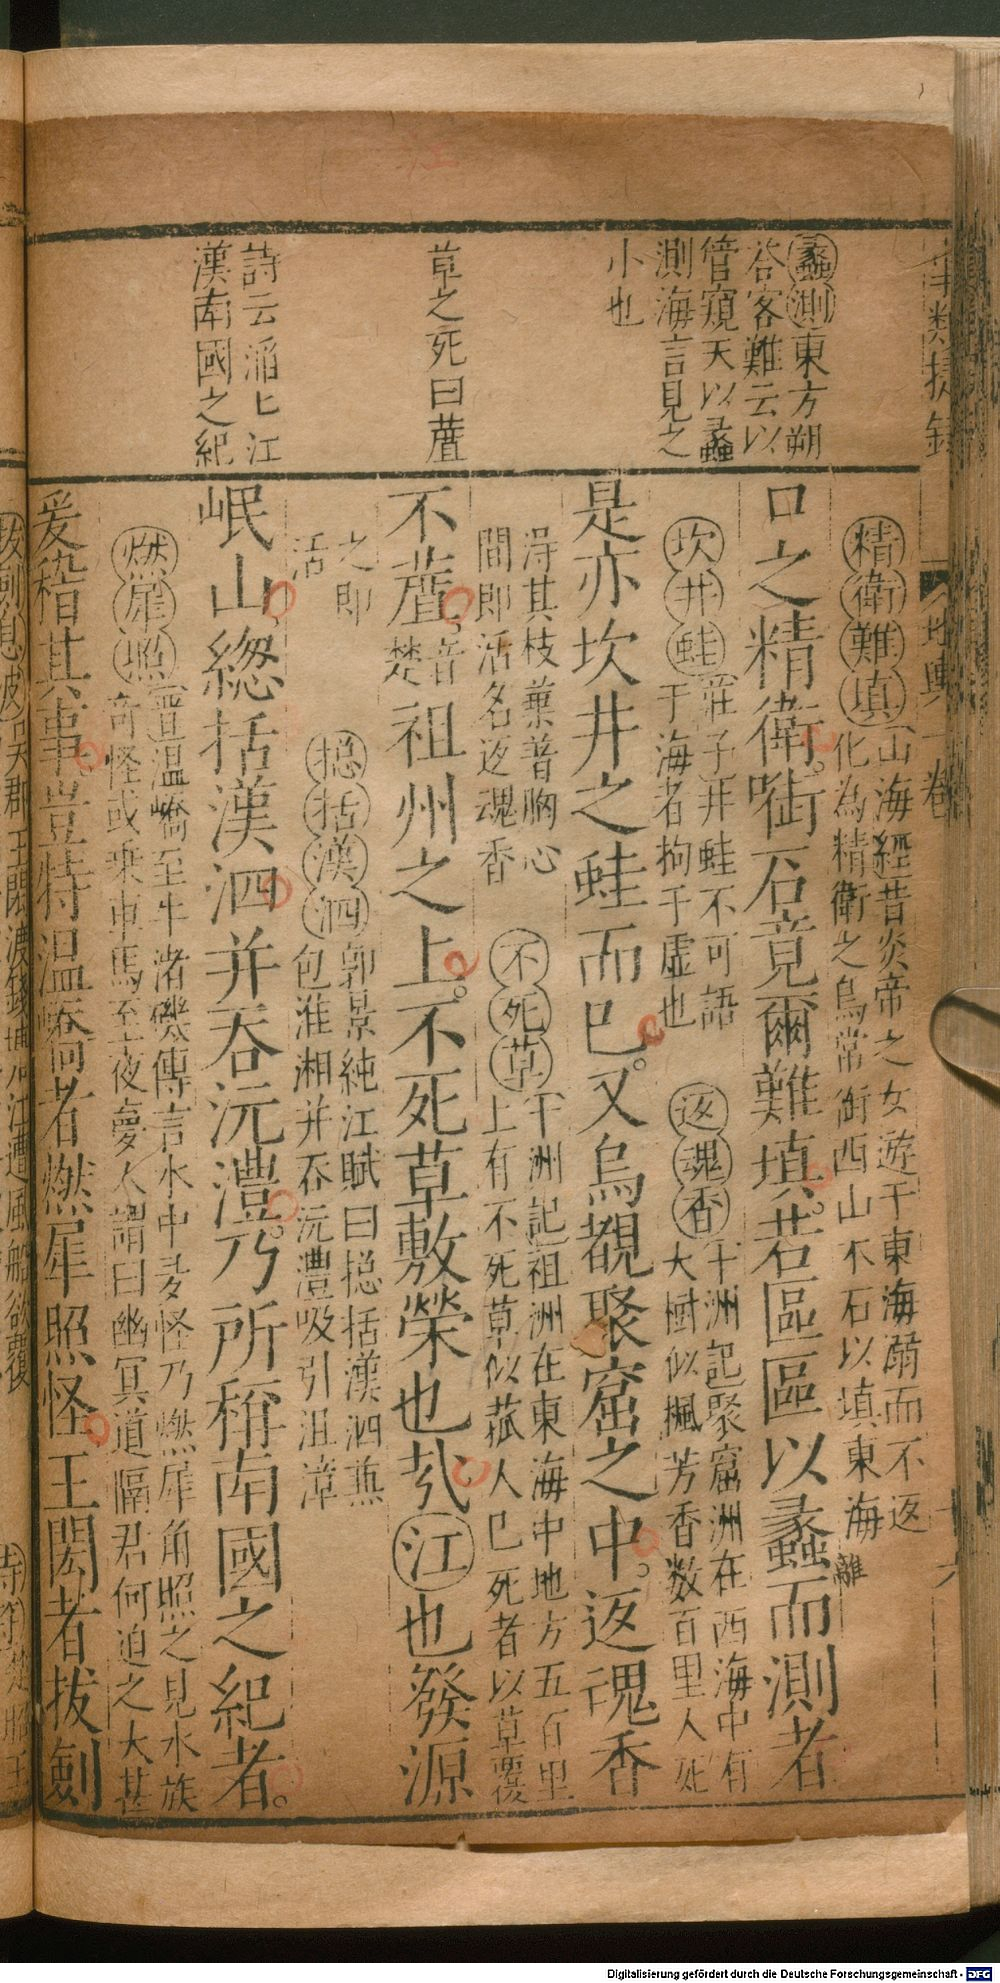 地輿一卷
蠡測東方朔
答客難云以
管窺天以蠡
測海言見之
小也
草之死曰蔖
詩云滔匕江
漢南國之紀
精衛難填山海經昔炎帝之女遊于東海溺而不返
化為精衛之鳥常衔西山木石以填東海 離
口之精衛啣石竟爾難填若區區以蠡而測者
坎井蛙莊子井蛙不可語
于海者拘于虛也
返魂香十洲記聚窟洲在西海中有
大樹似楓芳香数百里人死
是亦坎井之蛙而已又烏覩聚窟之中返魂香
淂其枝葉普胸心
間即活名返魂香
不死草十洲記祖洲在東海中地方五百里
上有不死草似菰人已死者以草覆
不蔖音楚祖州之上不死草敷榮也㢤江也發源
之即
活
揔括漢泗郭景純江賦曰揔括漢泗蒸
包淮湘并吞沅灃吸引沮漳
岷山總括漢泗并吞沅灃乃所稱南國之紀者
燃犀照晋温嶠至牛渚磯傳言水中多怪乃燃犀角照之見水族
奇怪或乘車馬至夜夢人謂曰幽冥道隔君何迫之大甚
爰稽其事豈特温嶠者燃犀照怪王閎者拔劍
拔劍息波吳郡王閎渡錢塘江遭風船欲覆
Digitalisierung gefördert durch die Deutsche Forschungsgemeinschaft - DFG